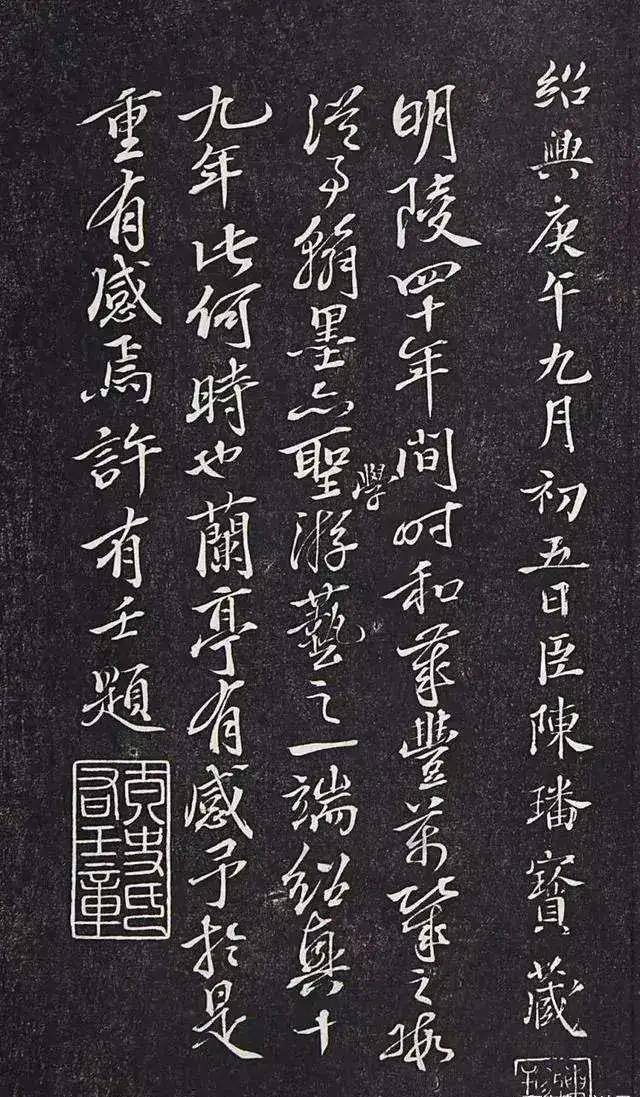 紹興庚午九月初五日臣陳璠寳藏
明陵四十年間时和歲豐萬幾之暇
從事翰墨亦聖學游藝之一端紹興十
九年此何時也蘭亭有感予於是
重有感焉許有壬題